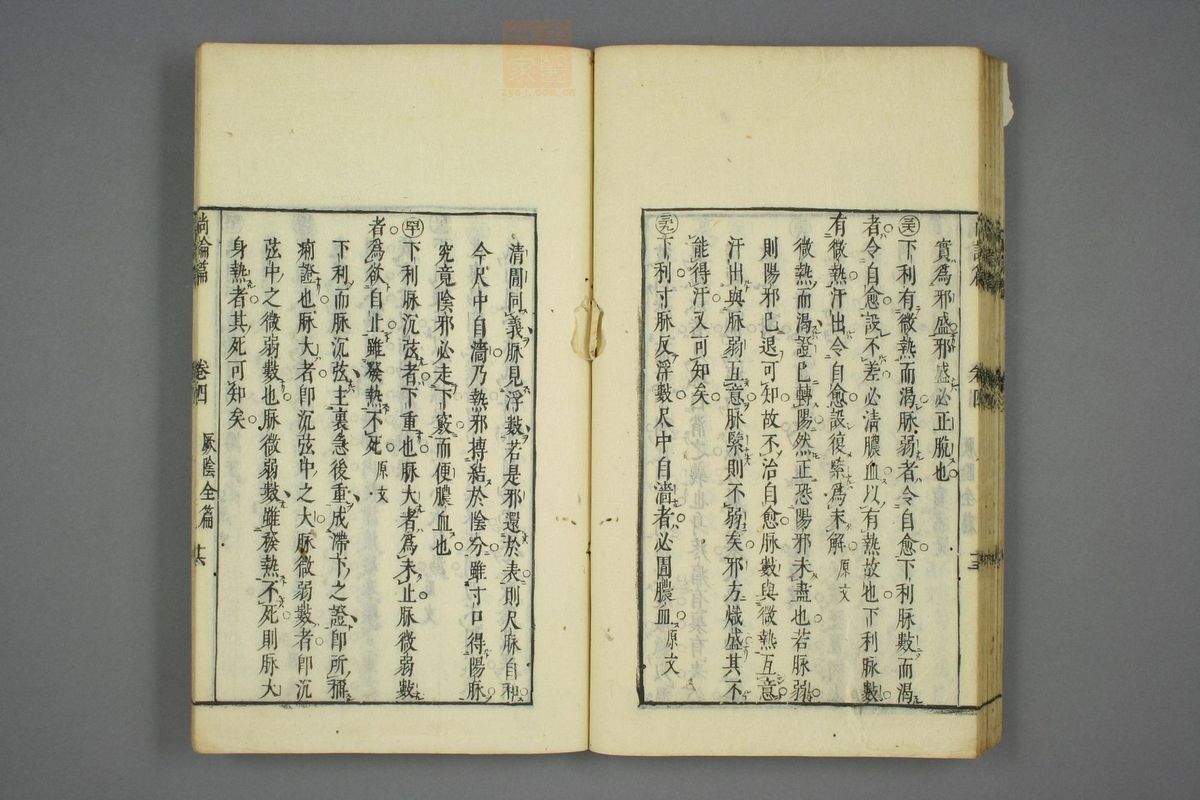 實爲邪盛邪盛必正脫也
下利有微熱而渴脉弱者令自愈下利脉數而渴
者令自愈設不差必淸膿血以有熱故也下利脉數
有微熱汗出令自愈設復緊爲未解 原文
微熱而渴證已轉陽然正恐陽邪未盡也若脉弱
則陽邪已退可知故不治自愈脉數與微熱互意
汗出與脉弱互意脉緊則不弱矣邪方熾盛其不
能得汗又可知矣
下利寸脉反浮數尺中自濇者必圊膿血 原文
清圊同義脉見浮數若是邪還於表則尺脉自和
今尺中自濇乃熱邪摶結於陰分雖寸口得陽脉
究竟陰邪必走下竅而便膿血也
下利脉沉弦者下重也脉大者爲未止脉微弱數
者爲欲自止雖發熱不死 原文
下利而脉沉弦主裏急後重成滯下之證即所稱
痢證也脉大者即沉弦中之大脉微弱數者即沉
弦中之微弱數也脉微弱數雖發熱不死則脉大
身熱者其死可知矣
尚論篇 卷四 厥陰全篇
zysj.com.cn